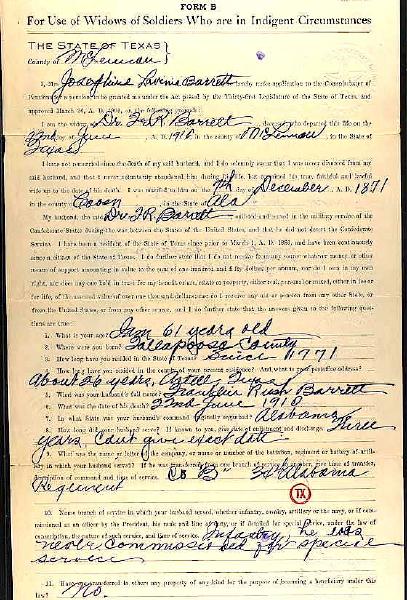 FORM B
For Use of Widows of Soldiers Who are in Indigent Circumstances
THE STATE OF TEXAS }
County of McLennan }
I, Mrs. Josephine Lavinia Barrett do hereby make application to the Commissioner of
Pensions for a pension to be granted me under the Act passed by the Thirty-first Legislature of the State of Texas, and
approved March 26, A. D. 1909, on the following grounds:
I am the widow of Dr. F. R. Barrett deceased, who departed this life on the
22nd day of June A. D. 1910 in the county of McLennan, in the State of
Texas
I have not remarried since the death of my said husband, and I do solemnly swear that I was never divorced from my
said husband, and that I never voluntarily abandoned him during his life, but remained his true, faithful and lawful
wife up to the date of his death. I was married to him on the 7th day of December A. D. 1871
in the county of Coosa in the State of Ala
My husband, the said Dr F. R. Barrett enlisted and served in the military service of the
Confederate States during the war between the States of the United States, and that he did not desert the Confederate
Service. I have been a resident of the State of Texas since prior to March 1, A. D. 1880, and have been continuously
since a citizen of the State of Texas. I do further state that I do not receive from any source whatever money or other
means of support amounting in value to the sum of one hundred and fifty dollars per annum, nor do I own in my own
right, nor does any one hold in trust for my benefit or use, estate or property, either real, personal or mixed, either in fee or
for life, of the assessed value of over one thousand dollars; nor do I receive any aid or pension from any other State, or
from the United States, or from any other source, and I do further state that the answers given to the following ques-
tions are true:
1. What is your age? I am 61 years old
2. Where were you born? Tallapoosa County
3. How long have you resided in the State of Texas? Since 1877
4. How long have you resided in the county of your present residence? And what is your postoffice address?
About 26 years, Axtell, Texas
5. What was your husband's full name? Franklin Rush Barrett
6. What was the date of his death? 22nd June 1910
7. In what State was your husband's command originally organized? Alabama
8. How long did your husband serve? If known to you, give date of enlistment and discharge. Three
years, Cant give exact date
9. What was the name or letter of the company, or name or number of the battalion, regiment or battery of artil-
lery in which your husband served? If he was transferred from one branch of service to another, give time of transfer,
description of command and time of service. Co "B" Alabama
Regiment
TX
10. Name branch of service in which your husband served, whether infantry, cavalry, artillery or the navy, or if com-
missioned as an officer by the President, his rank and line of duty, or if detailed for special service, under the law of
conscription, the nature of such service, and time of service. Infantry, he was
never commissioned for special
service
11. Have you transferred to others any property of any kind for the purpose of becoming a beneficiary under this
law? No.